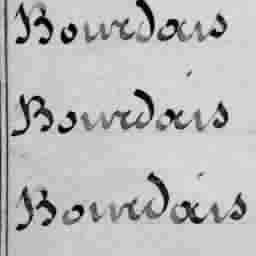 Bourdais
Bourdais
Bourdais